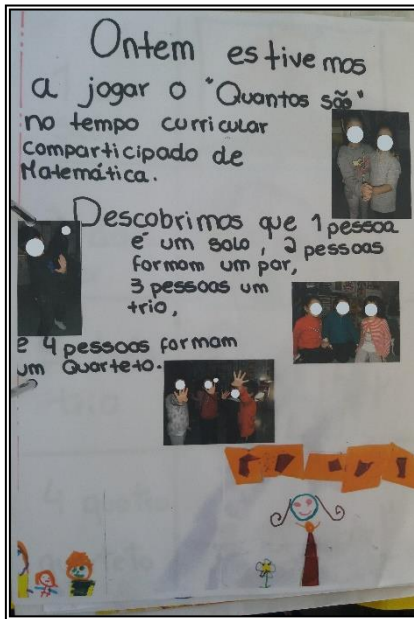 Ontem estivemos
a jogar o "Quantos são"
no tempo curricular
comparticipado de
Matemática.
Descobrimos que 1 pessoa
é um solo, 2 pessoas
formam um par,
3 pessoas um
trio,
e 4 pessoas formam
um Quarteto.